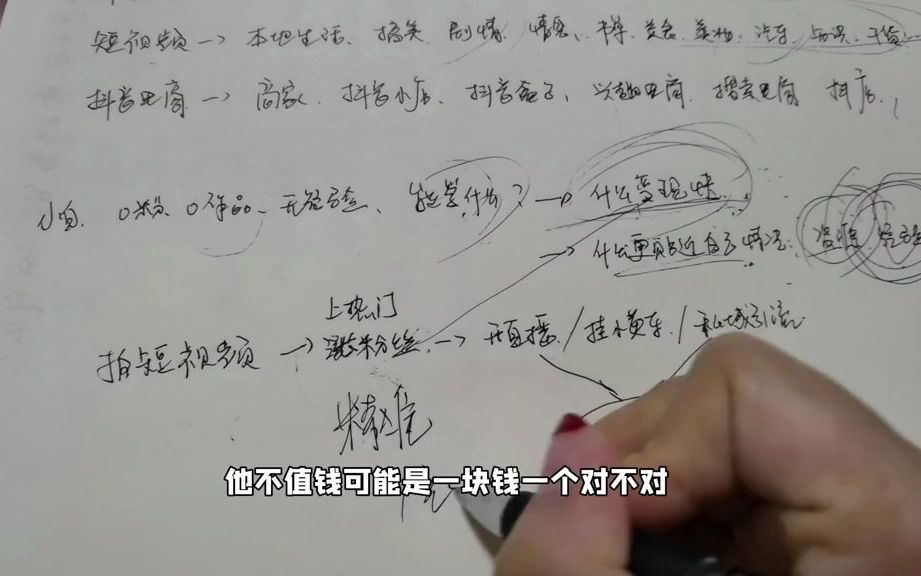 短视频→本地生活、搞笑、剧情、情感、美食、美妆、汽车、知识、干货
抖音电商→商家、抖音小店、抖音盒子、兴趣电商、搜索电商、抖店、
小白、0粉、0作品、无经验、能学什么?→什么变现快
→什么更贴近自己情况:资源,
上热门
拍短视频→涨粉丝→开直播/挂小黄车/私域引流
精准
他不值钱可能是一块钱一个对不对